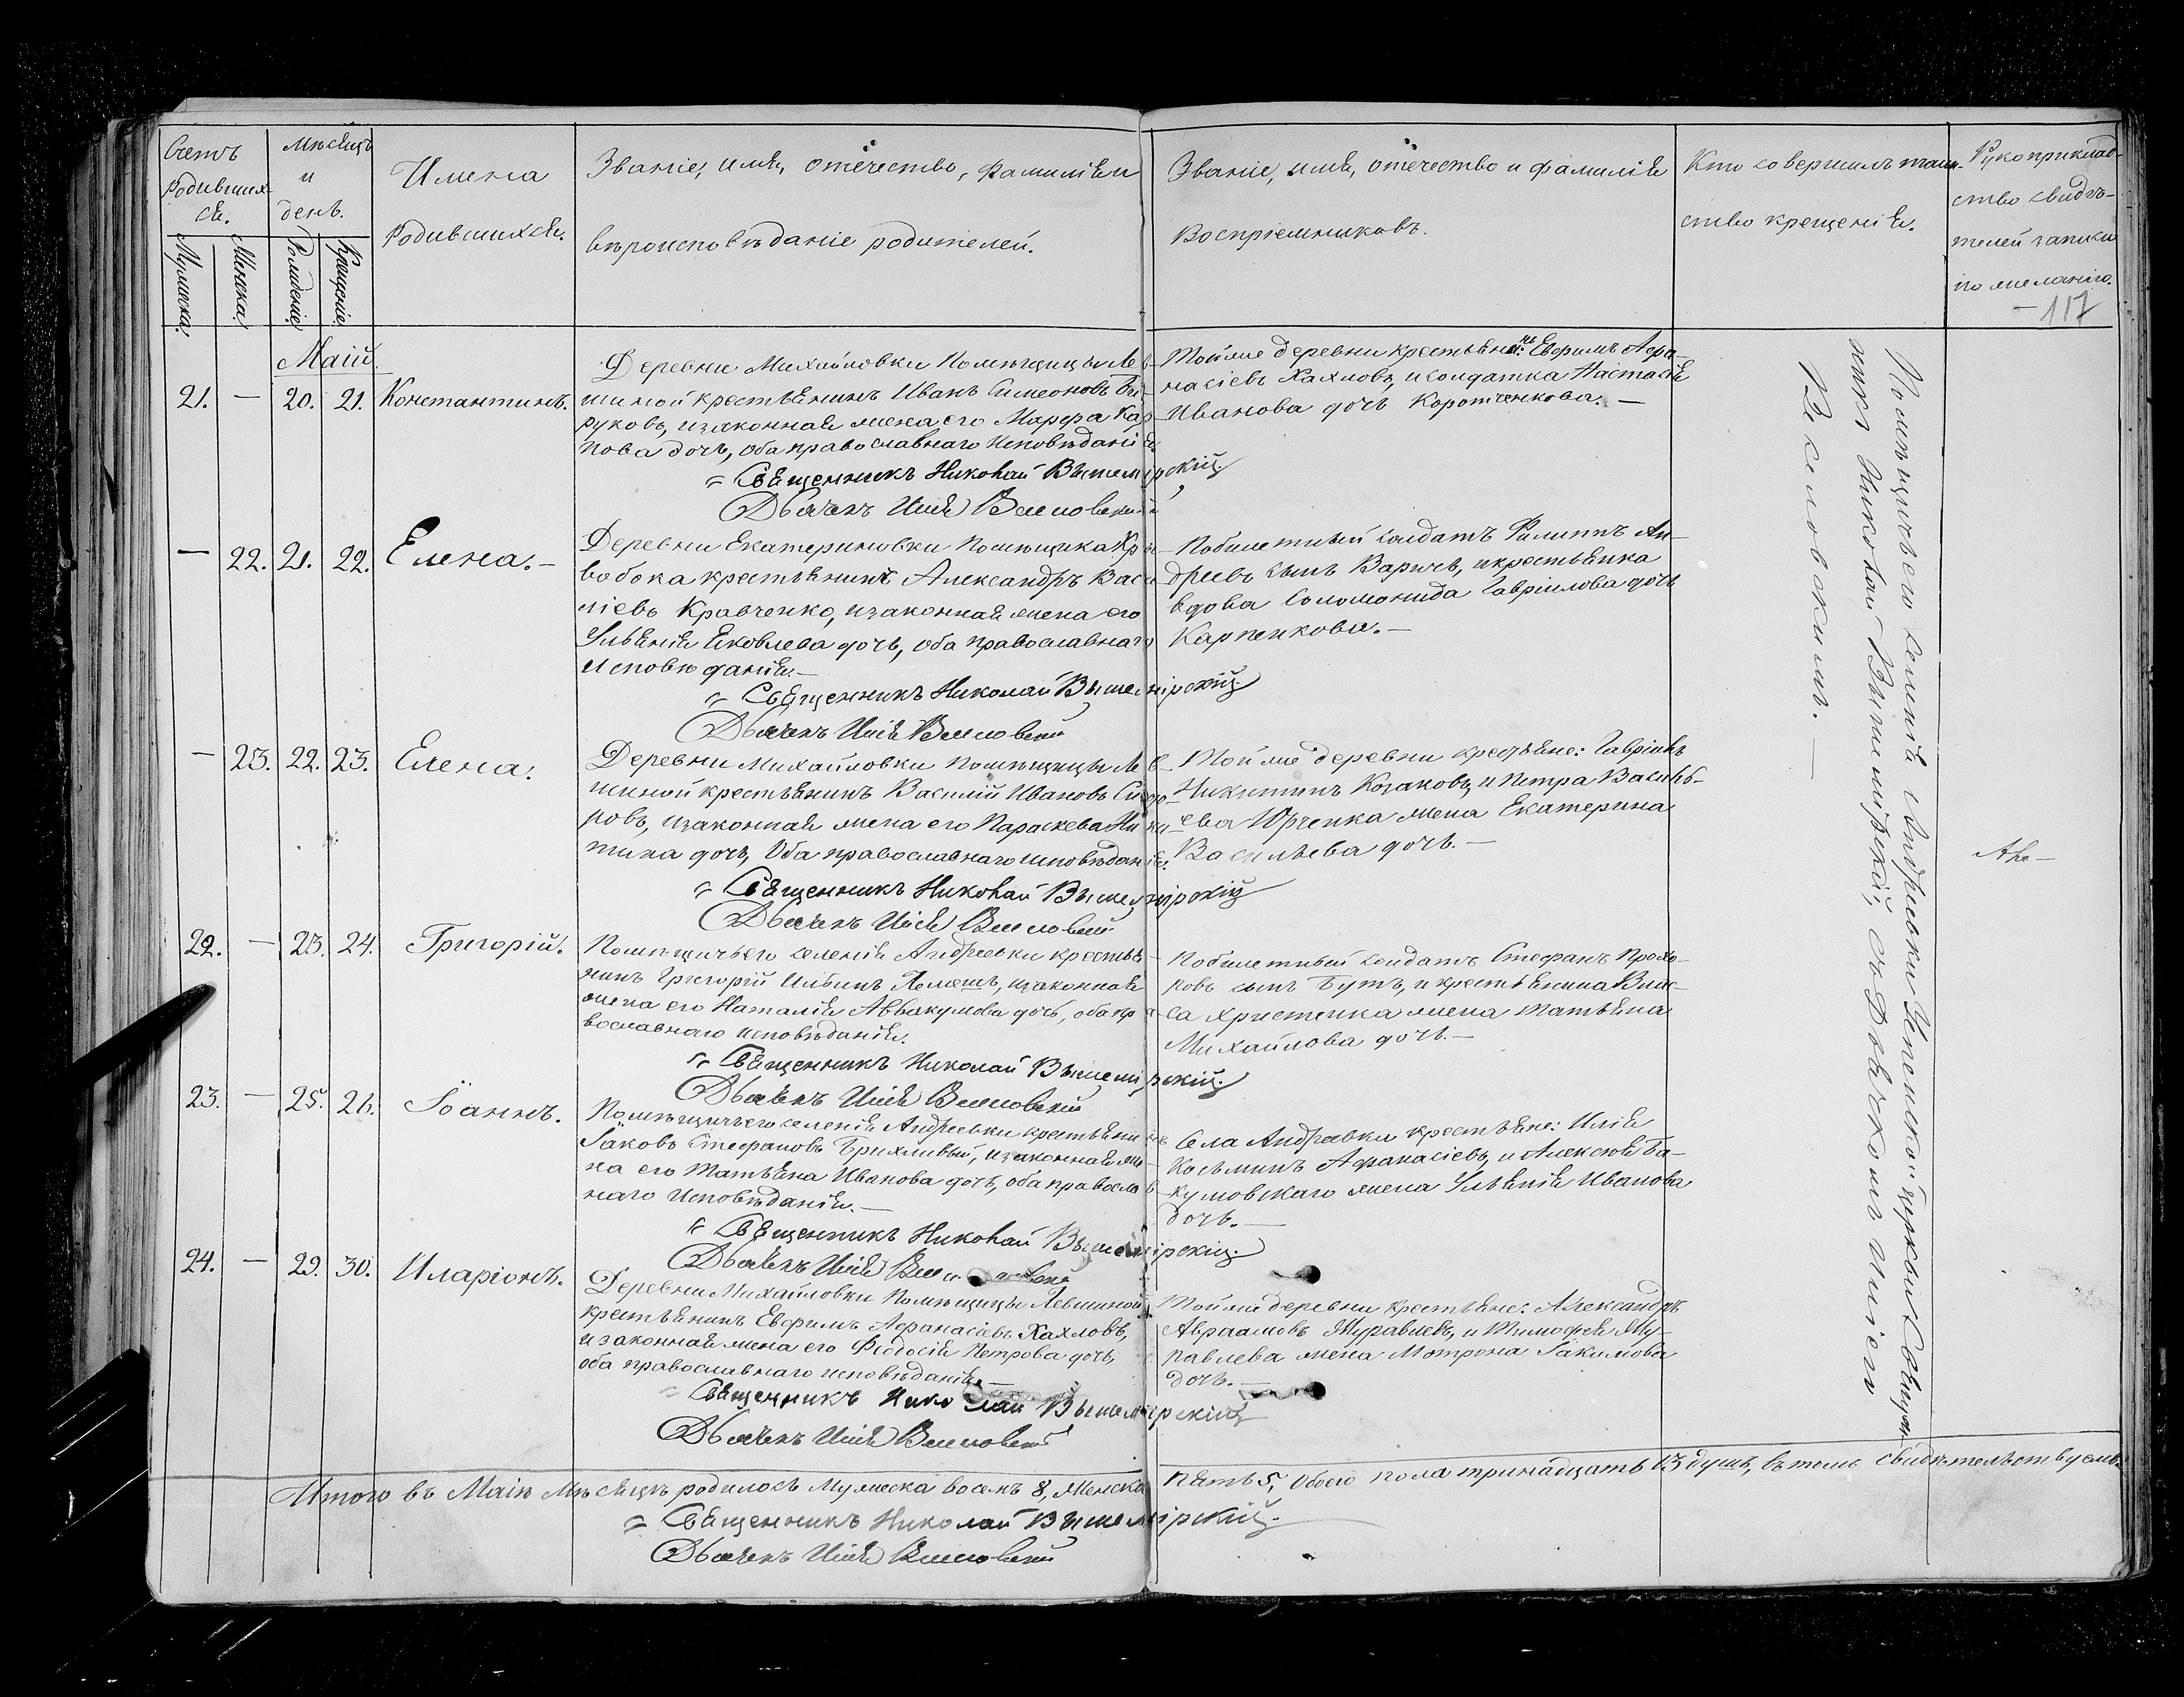 Счетъ
Родивших-
ся.
Мужеска.
Женска.
Мѣсяцъ
и
день.
Рожденіе.
Крещеніе.
Имена
Родившихся.
Званіе, имя, отечество, фамилія и
вѣроисповѣданіе родителей.
Званіе, имя, отечество и фамилія
Воспріемниковъ.
Кто совершилъ таин-
ство крещенія.
Рукоприклад-
ство свидѣ-
телей записи
по желанію.
117
Маій
21. — 20. 21. Константинъ.
Деревни Михайловки Помѣщицы Лев-
шиной крестьянинъ Иванъ Симеоновъ Би-
руковъ, и законная жена его Марѳа Кар-
пова дочь, оба православнаго исповѣданія.
Священникъ Николай Вышемірскій
Дьячекъ Илія Веселовскій
Тойже деревни крестьяне: Евфимъ Афа-
насіевъ Хахловъ, и солдатка Настасія
Иванова дочь Коротченкова. —
— 22. 21. 22. Елена. —
Деревни Екатериновки Помѣщика Кри-
вобока крестьянинъ Александръ Васи-
ліевъ Кравченко, и законная жена его
Ульянія Яковлева дочь, оба православнаго
исповѣданія. —
Священникъ Николай Вышемірскій
Дьячекъ Илія Веселовскій
Побилетный солдатъ Филиппъ Ан-
дреевъ сынъ Варичъ, и крестьянка
вдова Соломонида Гавріилова дочь
Карпенкова. —
— 23. 22. 23. Елена.
Деревни Михайловки Помѣщицы Лев-
шиной крестьянинъ Василій Ивановъ Сидо-
ровъ, и законная жена его Параскева Ники-
тина дочь, Оба православнаго исповѣданія.
Священникъ Николай Вышемірскій
Дьячекъ Илія Веселовскій
Тойже деревни крестьяне: Гавріилъ
Никитинъ Козаковъ, и Петра Василь-
ева Юрченка жена Екатерина
Васильева дочь. —
22. — 23. 24. Григорій.
Помѣщичьего селенія Андреевки крестья-
нинъ Григорій Ильинъ Лемешъ, и законная
жена его Наталія Аввакумова дочь, оба пра-
вославнаго исповѣданія.
Священникъ Николай Вышемірскій
Дьячекъ Илія Веселовскій
Побилетный солдатъ Стефанъ Прохо-
ровъ сынъ Бутъ, и крестьянина Влас-
са Христенка жена Татьяна
Михайлова дочь. —
23. — 25. 26. Іоаннъ.
Помѣщичьего селенія Андреевки крестьянинъ
Іаковъ Стефановъ Брихливый, и законная же-
на его Татьяна Иванова дочь, оба православ-
наго исповѣданія. —
Священникъ Николай Вышемірскій
Дьячекъ Илія Веселовскій
Села Андреевки крестьяне: Илія
Косьминъ Афанасіевъ, и Алексѣя Ба-
кумовскаго жена Ульянія Иванова
дочь. —
24. — 29. 30. Иларіонъ.
Деревни Михайловки Помѣщицы Левшиной
крестьянинъ Евфимъ Афанасіевъ Хахловъ,
и законная жена его Феодосія Петрова дочь,
оба православнаго исповѣданія. —
Священникъ Николай Вышемірскій
Дьячекъ Илія Веселовскій
Тойже деревни крестьяне: Александръ
Авраамовъ Журавлевъ, и Тимофея Жу-
равлева жена Мотрона Іакимова
дочь. —
Помѣщичьего селенія Андреевки Успенской Церкви Священ-
никъ Николай Вышемірскій, съ Дьячкомъ Иліею
Веселовскимъ. —
Итого въ Маіѣ Мѣсяцѣ родилось Мужеска восемь 8, Женска пять 5, Обоего пола тринадцать 13 душъ, въ томъ свидѣтельствуемъ.
Священникъ Николай Вышемірскій
Дьячекъ Илія Веселовскій